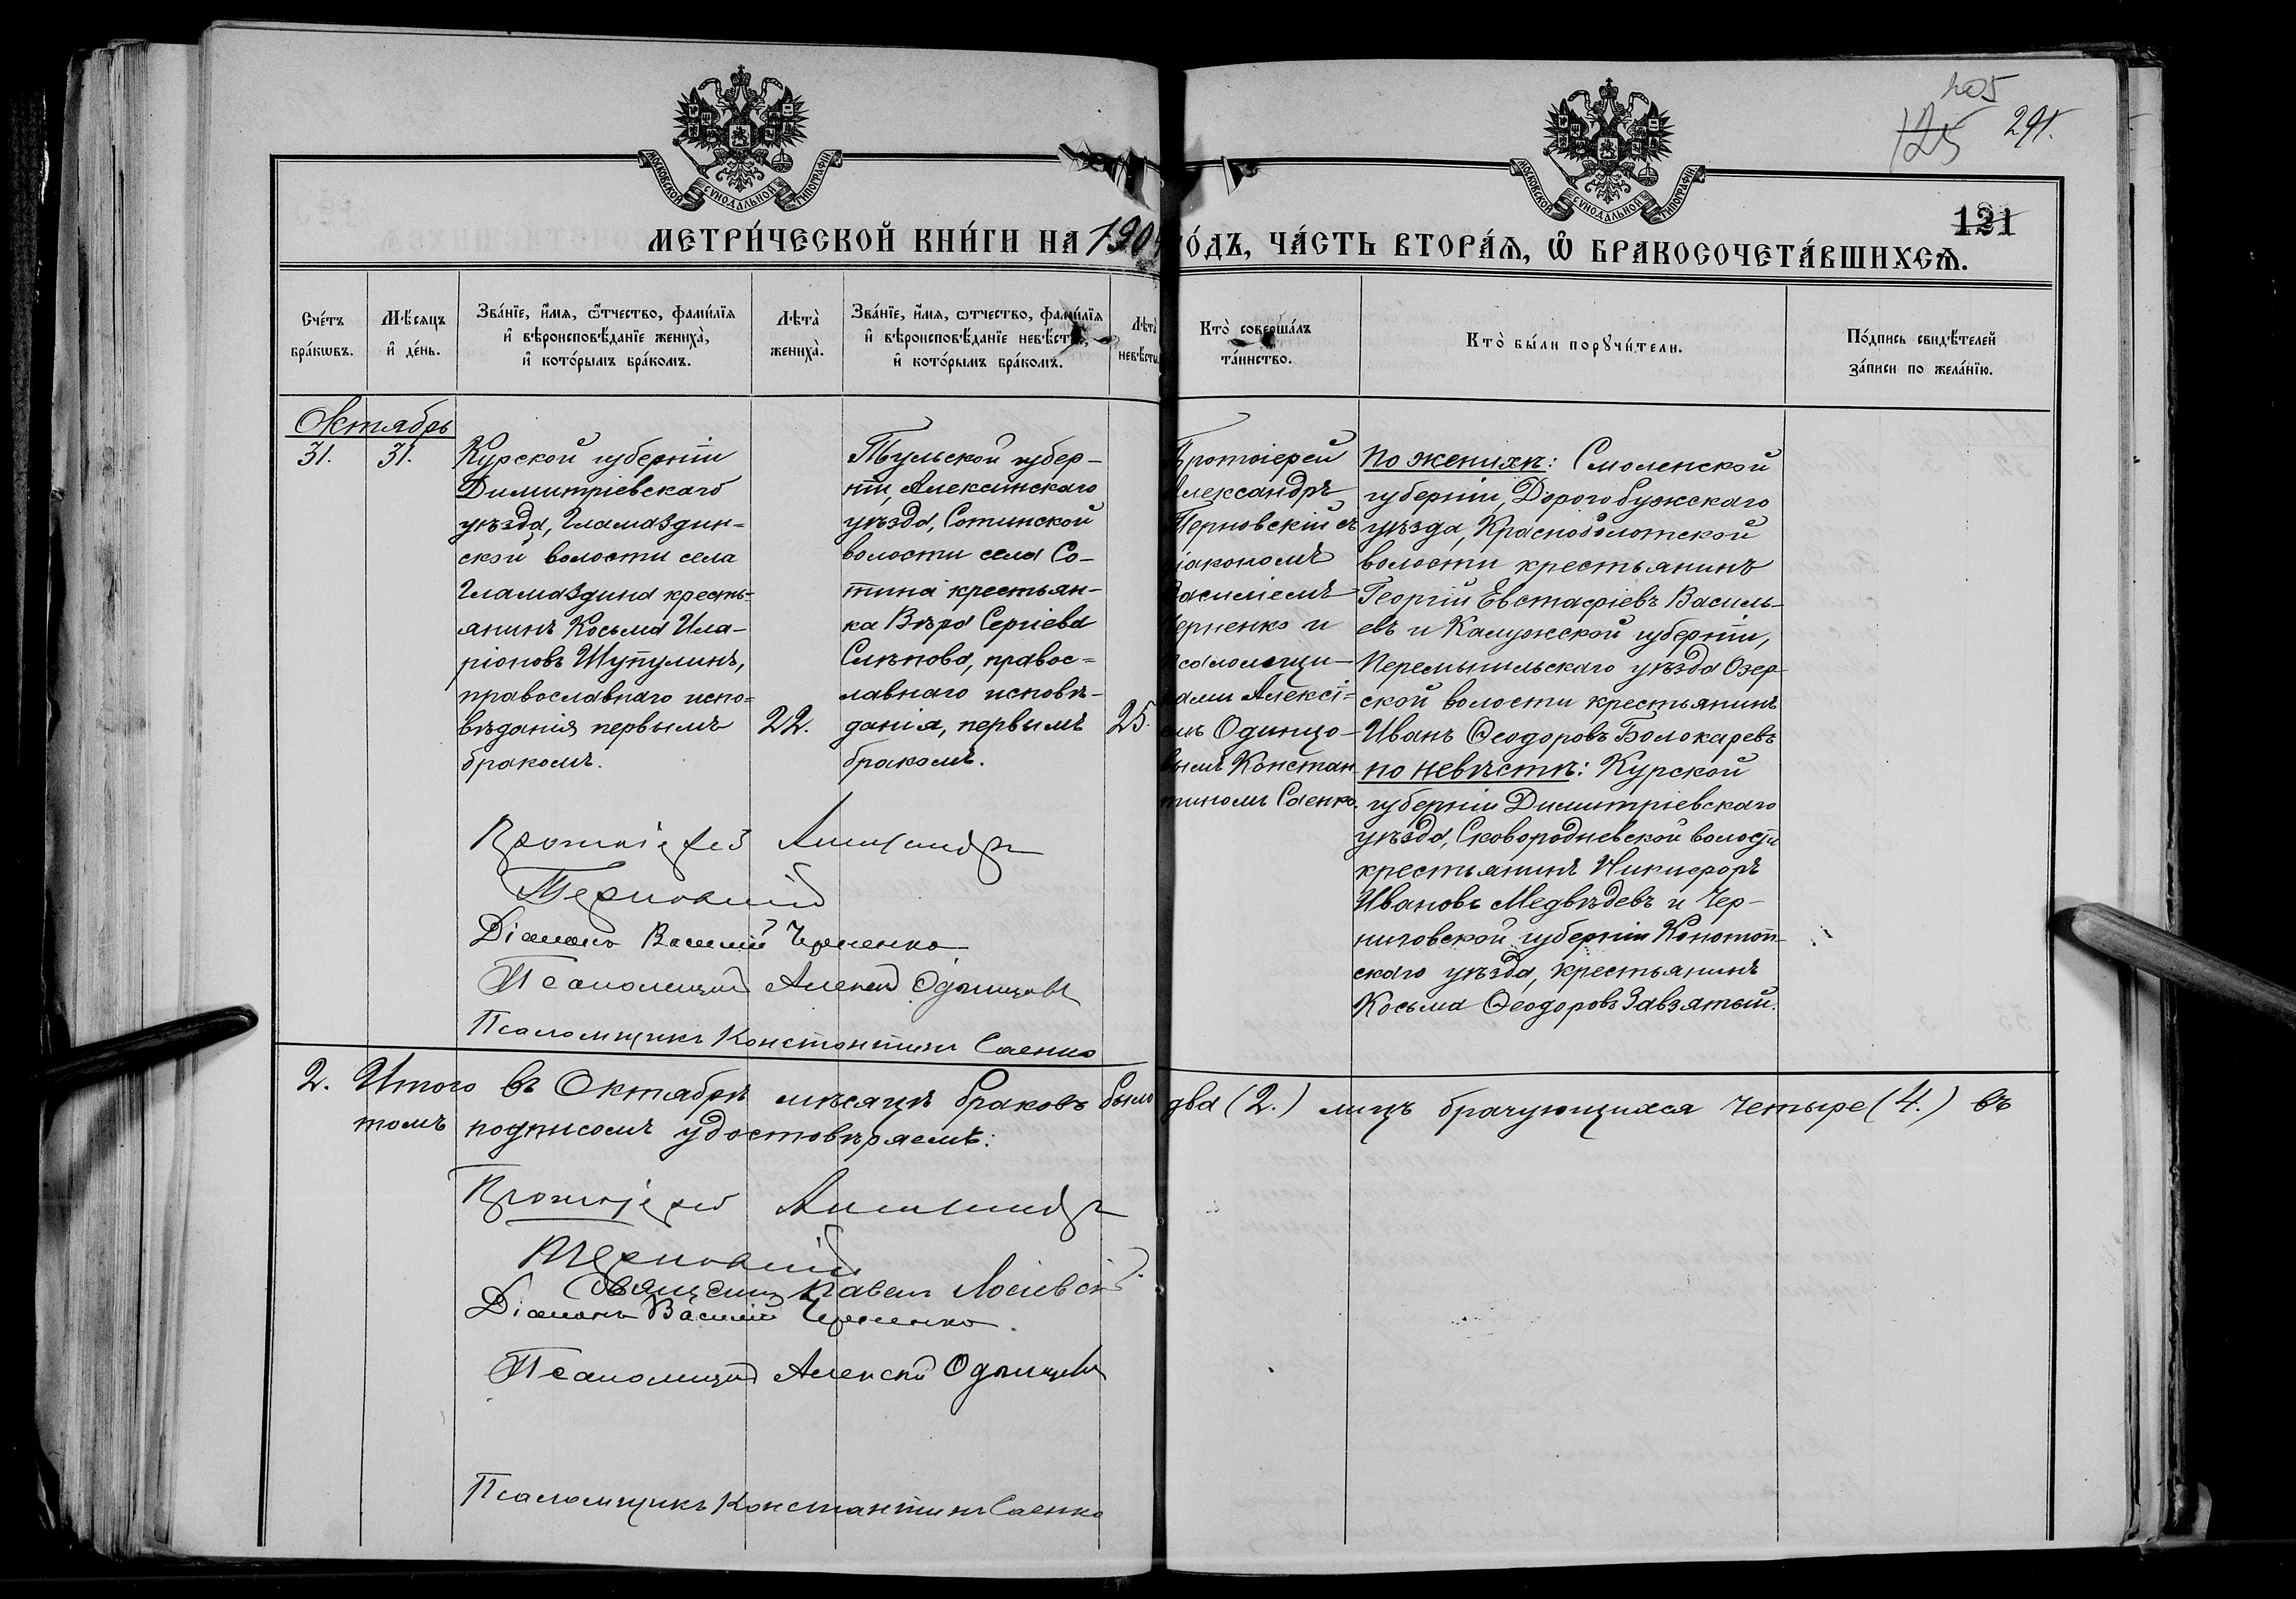 205
125 291.
МОСКОВСКОЙ СѴНОДАЛЬНОЙ ТИПОГРАФІИ
МОСКОВСКОЙ СѴНОДАЛЬНОЙ ТИПОГРАФІИ
121
МЕТРИ́ЧЕСКОЙ КНИ́ГИ НА 190
О́ДЪ, ЧА́СТЬ ВТОРА́Ѧ, Ѽ БРАКОСОЧЕТА́ВШИХСѦ.
Сче́тъ
бра́кѡвъ.
Мѣ́сяцъ
и҆ де́нь.
Зва́нїе, и҆́мя, ѻ҆́тчество, фами́лїя
и҆ вѣроисповѣ́данїе жениха̀,
и҆ кото́рымъ бра́комъ.
Лѣта̀
жениха̀.
Зва́нїе, и҆́мя, ѻтчество, фами́лїя
и҆ вѣроисповѣ́данїе невѣ́сты,
и҆ кото́рымъ бра́комъ.
Лѣта̀
невѣ́сты
Кто̀ соверша́лъ
та́инство.
Кто̀ бы́ли порꙋчи́тели.
По́дпись свидѣ́телей
за́писи по жела́нїю.
Октябрь
31. 31.
Курской губерніи
Димитріевскаго
уѣзда, Гламаздин=
ской волости села
Гламаздина кресть=
янинъ Косьма Ила-
ріоновъ Шупулинъ,
православнаго испо=
вѣданія первымъ
бракомъ.
22.
Тульской губер-
ніи, Алексинскаго
уѣзда, Сотинской
волости села Со-
тина крестьян-
ка Вѣра Сергіева
Слѣпова, правос=
лавнаго исповѣ-
данія, первымъ
бракомъ.
25.
Протоіерей
Александръ
Терновскій съ
іакономъ
Василіемъ
ерненко и
псаломщи-
ками Алексі=
емъ Одинцо-
вымъ Констан
тиномъ Саенко.
По женихѣ: Смоленской
губерніи, Дорогобужскаго
уѣзда, Красноболотской
волости крестьянинъ
Георгій Евстафіевъ Василь-
евъ и Калужской губерніи,
Перемышльскаго уѣзда Озер-
ской волости крестьянинъ
Иванъ Ѳеодоровъ Болокаревъ
по невѣстѣ: Курской
губерніи Димитріевскаго
уѣзда, Сковородневской волости
крестьянинъ Никифоръ
Ивановъ Медвѣдевъ и Чер-
ниговской губерніи Конотоп-
скаго уѣзда, крестьянинъ
Косьма Ѳеодоровъ Завзятый.
Протоіерей Александръ
Терновскій
Діаконъ Василій Черненко
Псаломщикъ Алексій Одинцовъ
Псаломщикъ Константинъ Саенко
2. Итого въ Октябрѣ мѣсяцѣ браковъ было два (2.) лицъ брачующихся четыре (4.) въ
томъ подписомъ удостовѣряемъ:
Протоіерей Александръ
Терновскій
Священникъ Павелъ
Діаконъ Василій Черненко.
Псаломщикъ Алексій Одинцовъ
Псаломщикъ Константинъ Саенко